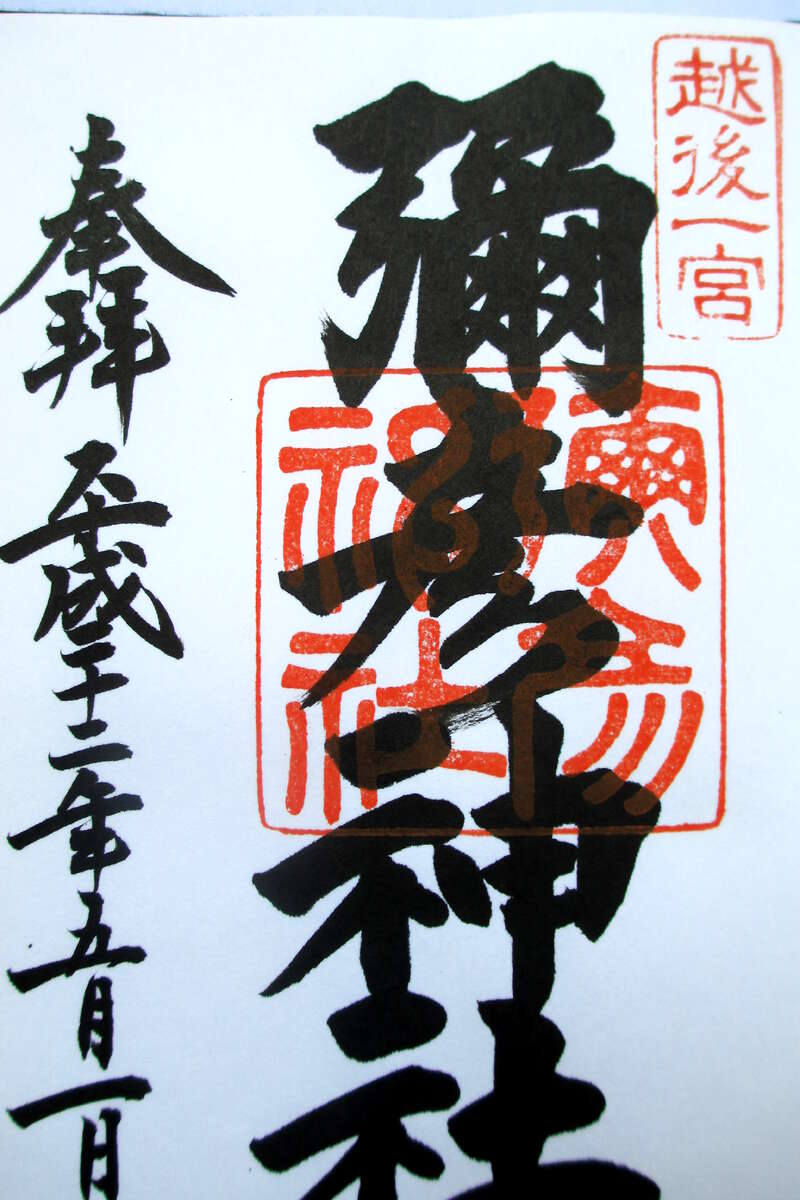 越後一宮
彌彦神社
彌彦
神社
奉拝 平成二十二年五月一日